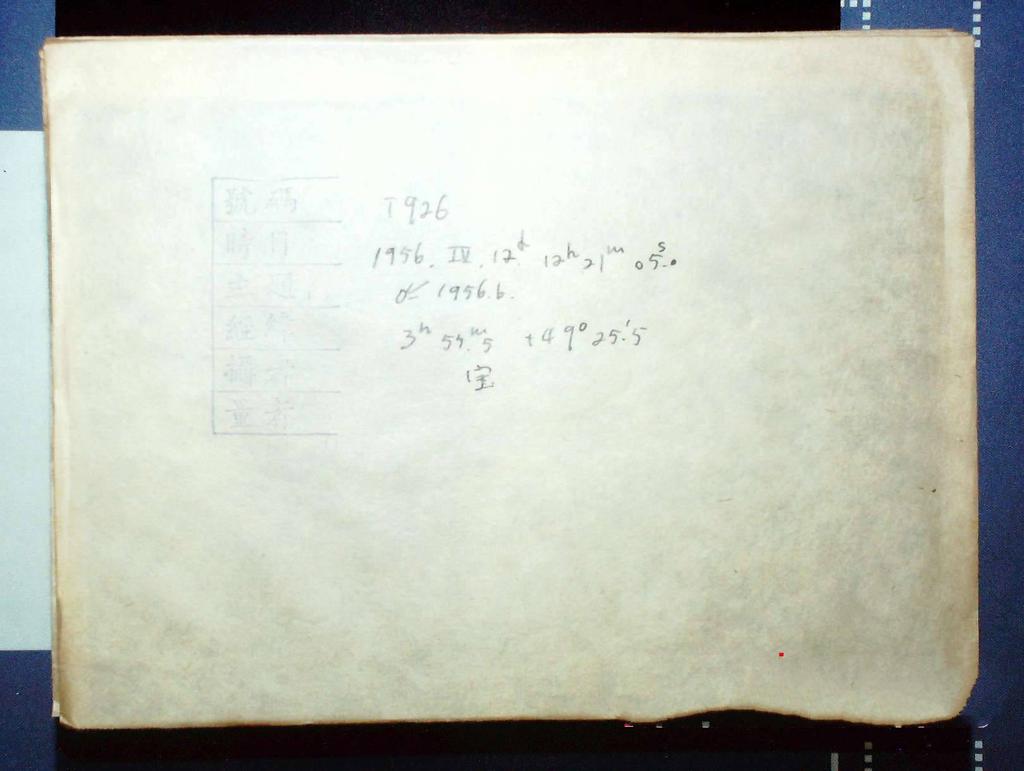 號碼 T926
時日 1956. IV. 12ᵈ 12ʰ 21ᵐ 05ˢ.0
主題 1956.b.
經緯 3ʰ 55ᵐ.5 +49° 25'.5
攝者 宝
量者